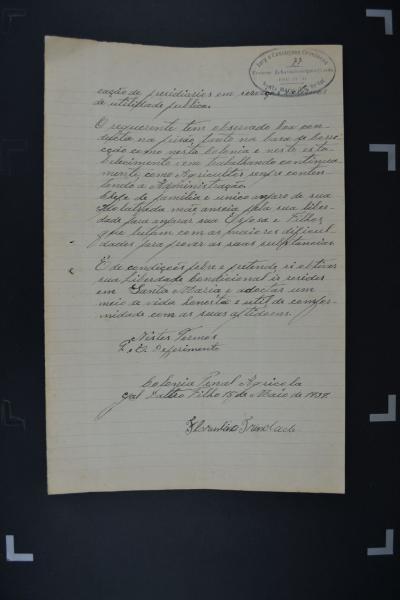 cação de presidiarios em serviços
de utilidade publica.
O requerente tem observado boa con-
ducta na prisão, tanto na casa de corre-
cção como nesta Colonia e neste esta-
belecimento vem trabalhando continua-
mente, como Agricultor sempre conten-
tando a Administração.
Chefe de familia e unico amparo de sua
mãe anseia pela sua liber-
dade para amparar sua Esposa e Filhos
que lutam com as maiores dificul-
dades para prover as suas
É de condições pobre e pretende, si obtiver
sua liberdade condicional ir residir
em Santa Maria e adoptar um
meio de vida honesto e util de confor-
midade com as suas aptidoens.
Nestes Termos
Deferimento
Colonia Penal Agricola
Gal. Daltro Filho 15 de Maio de